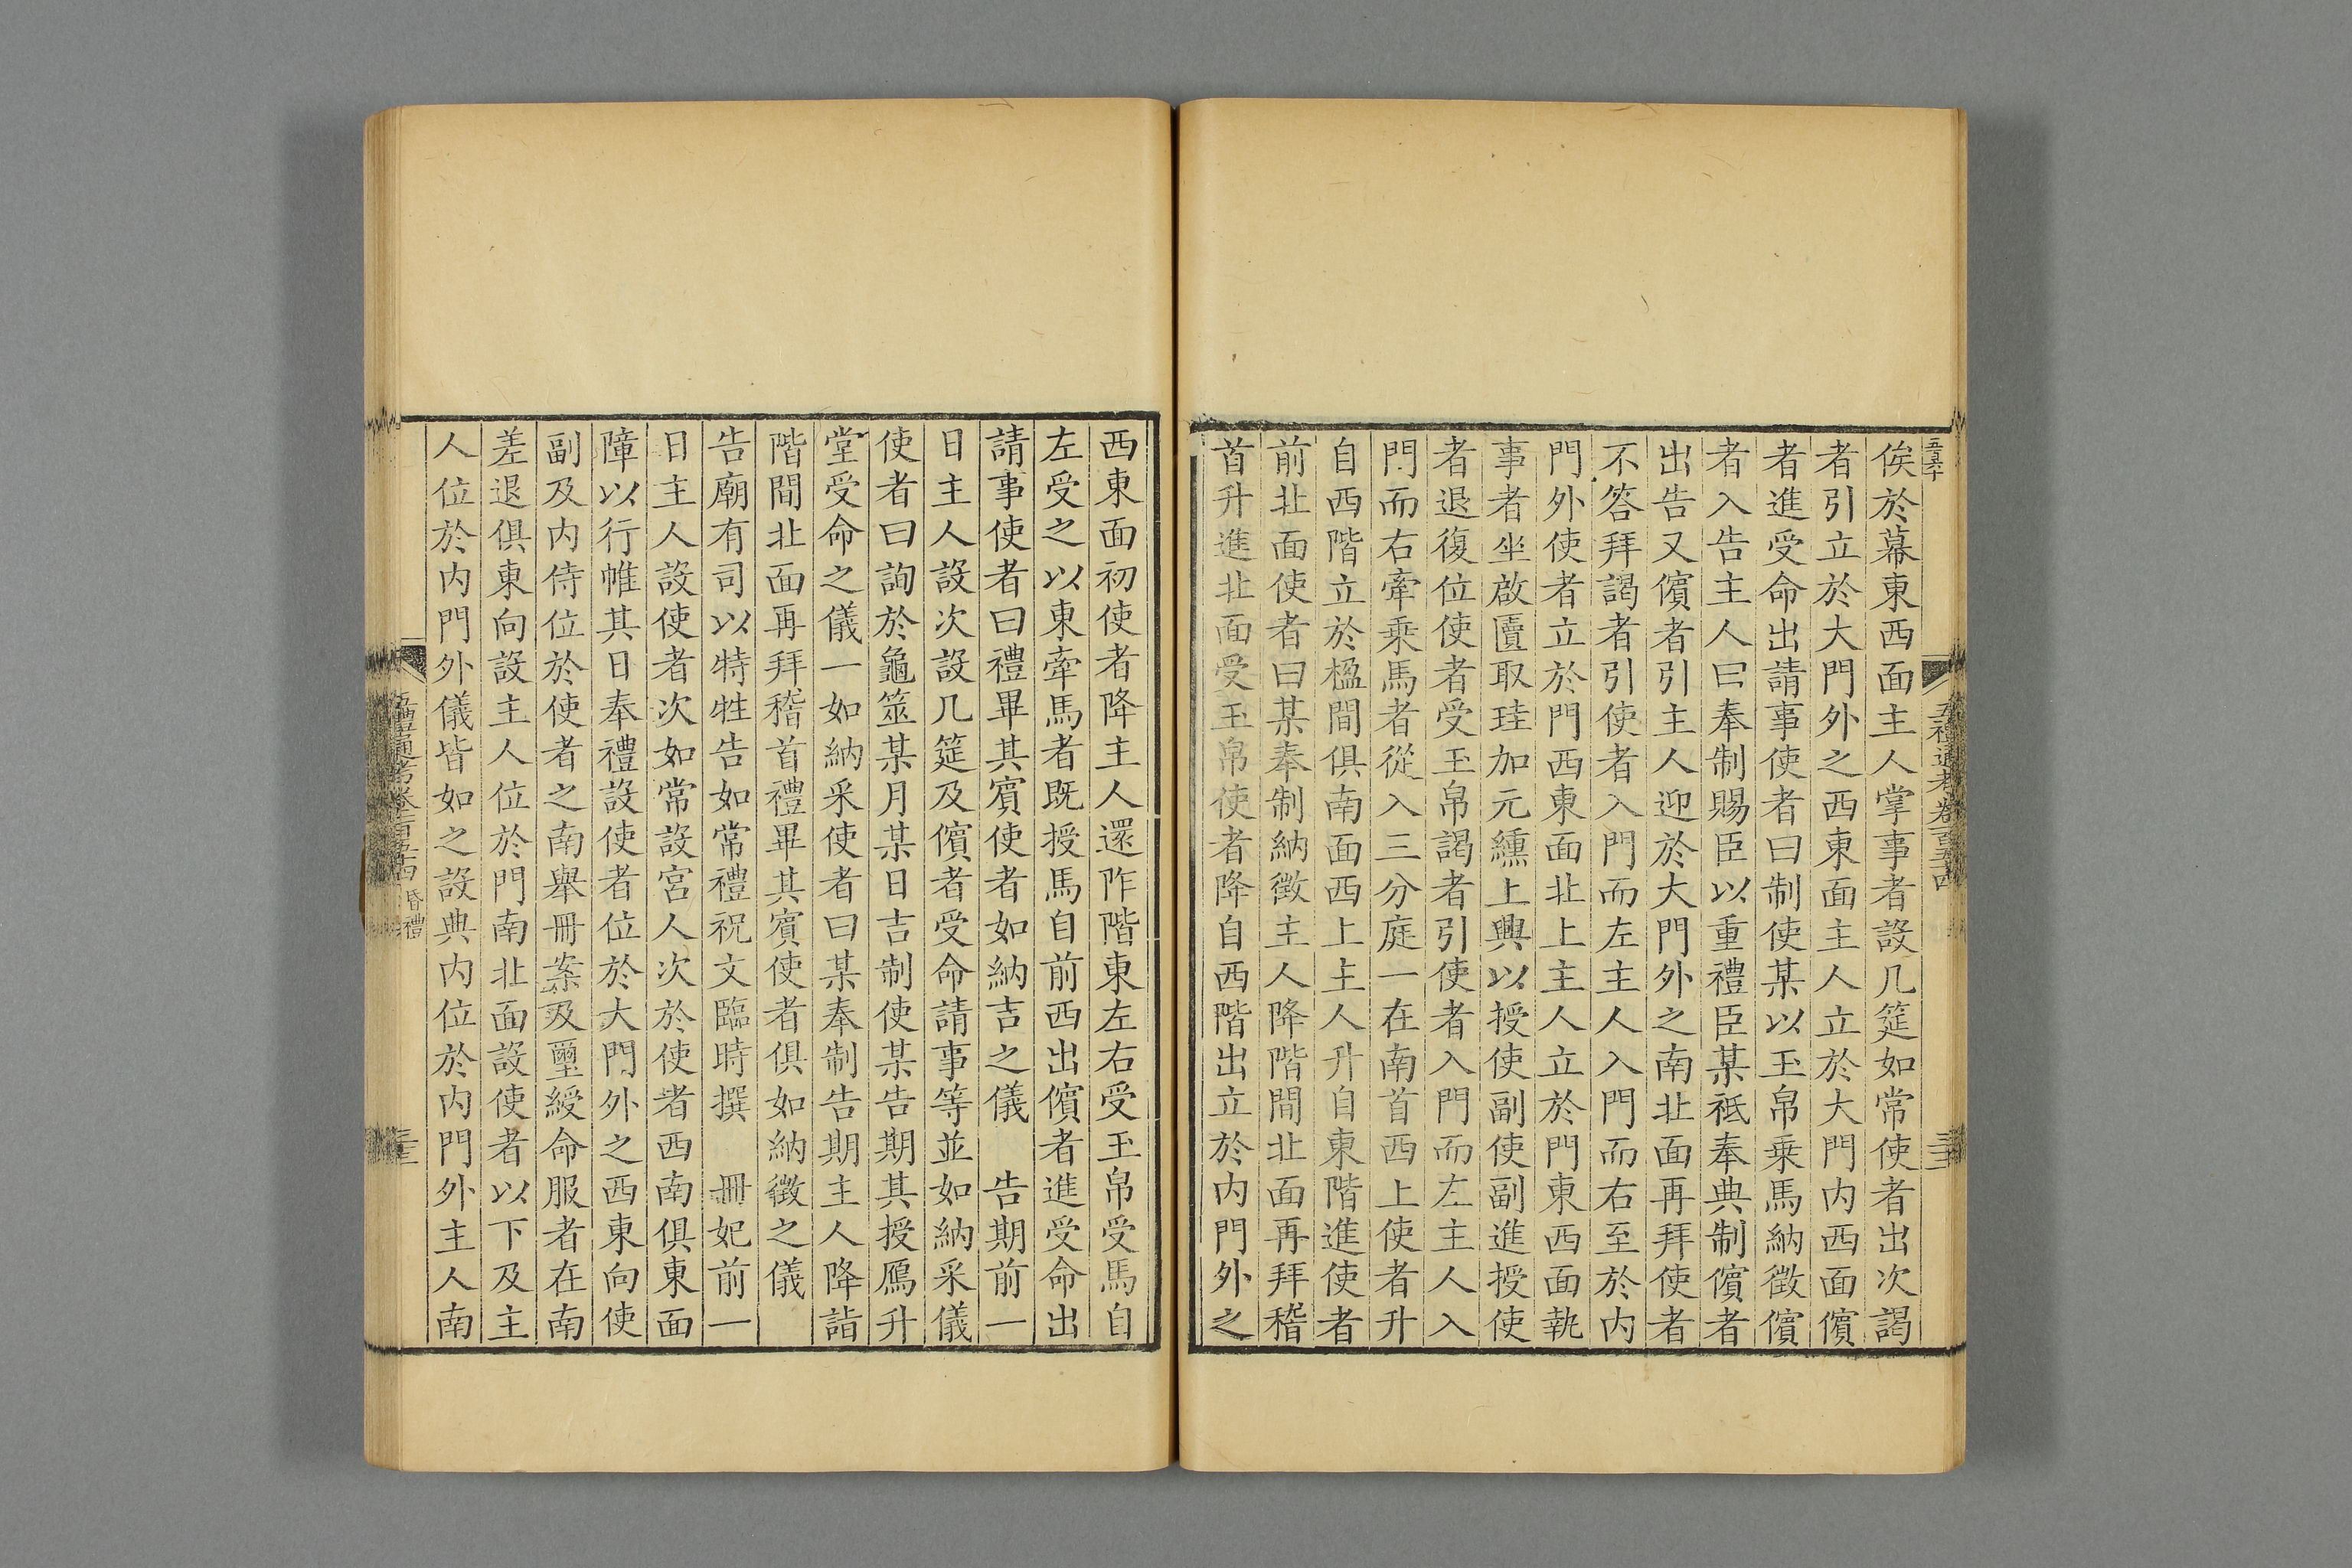 俟於幕東西面主人掌事者設几筵如常使者出次謁
者引立於大門外之西東面主人立於大門內西面儐
者進受命出請事使者曰制使某以玉帛乗馬納徵儐
者入告主人曰奉制賜臣以重禮臣某祗奉典制儐者
出告又儐者引主人迎於大門外之南北面再拜使者
不答拜謁者引使者入門而左主人入門而右至於內
門外使者立於門西東面北上主人立於門東西面執
事者坐啟匵取珪加元纁上興以授使副使副進授使
者退復位使者受玉帛謁者引使者入門而左主人入
門而右牽乗馬者從入三分庭一在南首西上使者升
自西階立於楹間俱南面西上主人升自東階進使者
前北面使者曰某奉制納徵主人降階間北面再拜稽
首升進北面受玉帛使者降自西階出立於內門外之
西東面初使者降主人還阼階東左右受玉帛受馬自
左受之以東牽馬者既授馬自前西出儐者進受命出
請事使者曰禮畢其賓使者如納吉之儀　告期前一
日主人設次設几筵及儐者受命請事等並如納采儀
使者曰詢於龜筮某月某日吉制使某告期其授鴈升
堂受命之儀一如納采使者曰某奉制告期主人降詣
階間北面再拜稽首禮畢其賓使者俱如納徵之儀
告廟有司以特牲告如常禮祝文臨時撰　冊妃前一
日主人設使者次如常設宮人次於使者西南俱東面
障以行帷其日奉禮設使者位於大門外之西東向使
副及內侍位於使者之南舉冊案及璽綬命服者在南
差退俱東向設主人位於門南北面設使者以下及主
人位於內門外儀皆如之設典內位於內門外主人南
五禮通考卷一百五十四
五禮通考卷一百五十四 昏禮